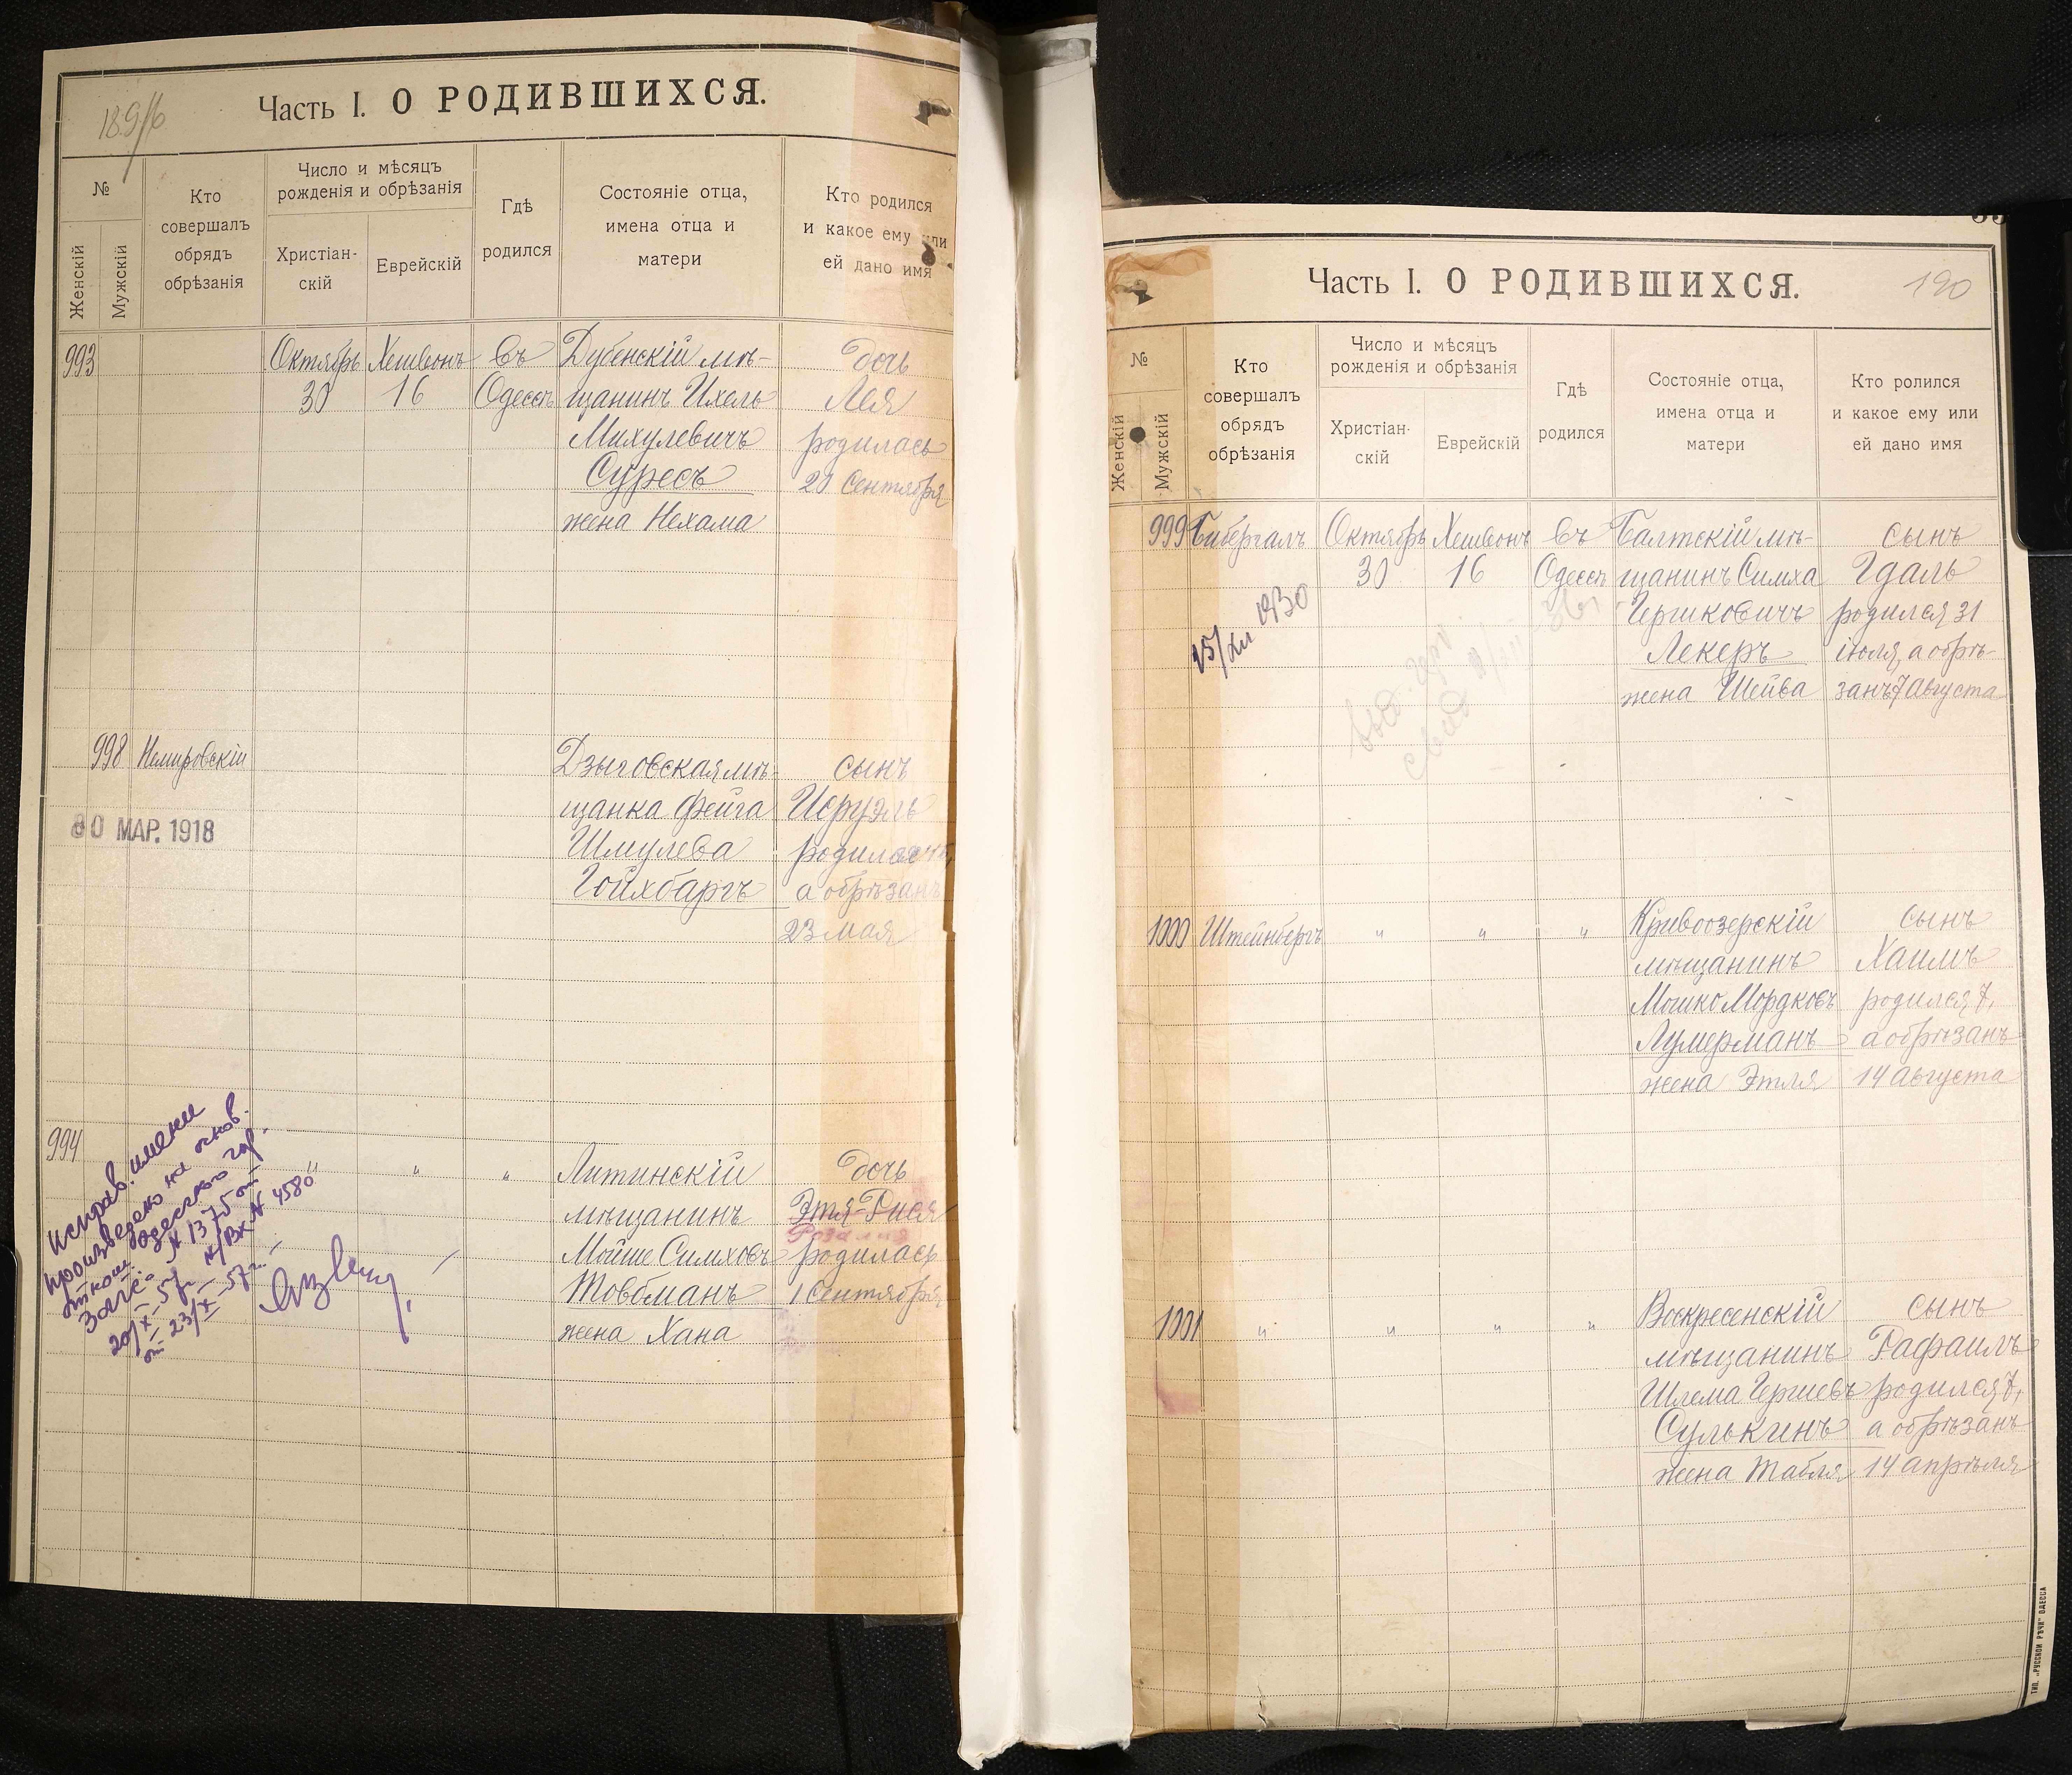 189/6
Часть I. О РОДИВШИХСЯ.
№
Женскій
Мужскій
Кто
совершалъ
обрядъ
обрѣзанія
Число и мѣсяцъ
рожденія и обрѣзанія
Христіан-
скій
Еврейскій
Гдѣ
родился
Состояніе отца,
имена отца и
матери
Кто родился
и какое ему или
ей дано имя
993 Октябрь Хешвонъ въ Дубенскій мѣ- дочь
30 16 Одессѣ щанинъ Ихель Лея
Михулевичъ родилась
Суресъ 20 Сентября
жена Нехама
998 Немировскій Дзыговская мѣ- сынъ
щанка Фейга Исруэль
30 МАР. 1918
Шмулева родился
Гойхбаргъ а обрѣзанъ
23 мая
994 " " " Литинскій дочь
мѣщанинъ Этя-Рися
Розалия
Мойше Симховъ родилась
Товбманъ 1 Сентября
жена Хана
Исправ. имени
произведено на основ.
Одесского гор.
Загса N 1375 от
20/X-57г. N/Вх N 4580
от 23/X-57г.
190
Часть I. О РОДИВШИХСЯ.
№
Женскій
Мужскій
Кто
совершалъ
обрядъ
обрѣзанія
Число и мѣсяцъ
рожденія и обрѣзанія
Христіан-
скій
Еврейскій
Гдѣ
родился
Состояніе отца,
имена отца и
матери
Кто ролился
и какое ему или
ей дано имя
999 Бибергалъ Октябрь Хешвонъ въ Балтскій мѣ- сынъ
30 16 Одессѣ щанинъ Симха Гдаль
Гершковичъ родился 31
Лекеръ іюля, а обрѣ-
жена Шейва занъ 7 Августа
1930
1000 Штейнбергъ " " " Кривоозерскій сынъ
мѣщанинъ Хаимъ
Мошко Мордковъ родился 7,
Лумерманъ а обрѣзанъ
жена Этля 14 Августа
1001 " " " " Воскресенскій сынъ
мѣщанинъ Рафаилъ
Шлема Гершевъ родился 7,
Сулькинъ а обрѣзанъ
жена Табля 14 апрѣля
ТИП. „РУССКОЙ РѢЧИ" ОДЕССА